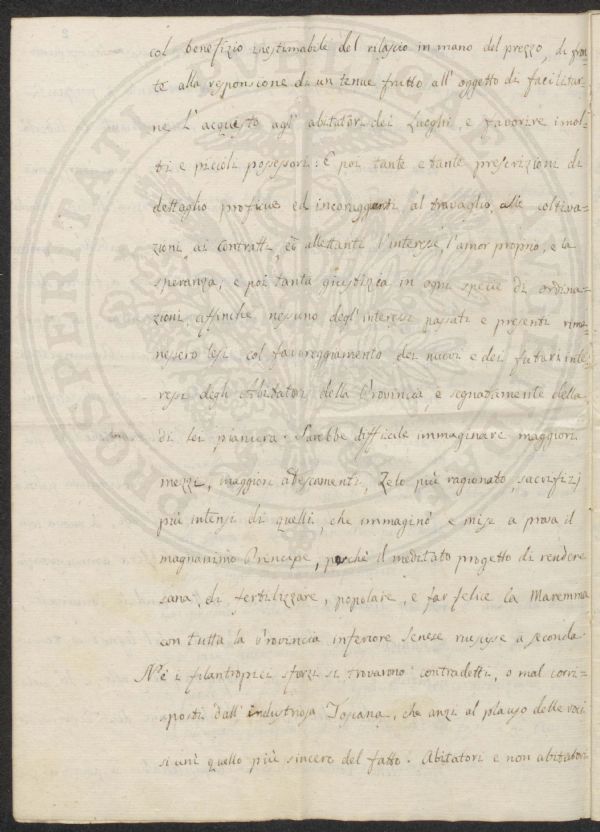 col benefizio inestimabile del rilascio in mano del prezzo, di fron
te alla responsione di un tenue frutto all' oggetto di facilitar-
ne l' acquisto agl' abitatori dei Luoghi, e favorire i mol-
ti e piccioli possessori: E poi tante e tante prescrizioni di
dettaglio proficue ed incoraggianti al travaglio, alle coltiva=
zioni, ai contratti, ed allettanti l'interesse, l'amor proprio, e la
speranza; e poi tanta giustizia in ogni specie di ordina=
zioni, affinchè nessuno degl' interessi passati e presenti rima-
nessero lesi col favoreggiamento dei nuovi e dei futuri inte
ressi degli Abitatori della Provincia, e segnatamente della
di lei pianura. Sarebbe difficile immaginare maggiori
mezzi, maggiori adescamenti, Zelo più ragionato, sacrifizj
più intensi di quelli, che immaginò e mise a prova il
magnanimo Principe, perchè il meditato progetto di rendere
sana, di fertilizzare, popolare, e far felice la Maremma
con tutta la Provincia inferiore Senese riuscisse a seconda.
Nè i filantropici sforzi si trovarono contradetti, o mal corri-
sposti dall' industriosa Toscana, che anzi al plauso delle voci
si unì quello più sincero del fatto. Abitatori e non abitatori
PROSPERITATI PUBLICAE AUGENDAE